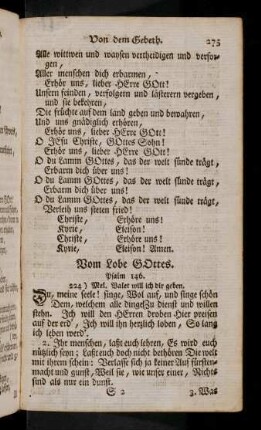 Von dem Gebeth. 275
Alle wittwen und waysen vertheidigen und versor-
gen,
Aller menschen dich erbarmen,
Erhör uns, lieber HErre GOtt!
Unsern feinden, verfolgern und lästerern vergeben,
und sie bekehren,
Die früchte auf dem land geben und bewahren,
Und uns gnädiglich erhören,
Erhör uns, lieber HErre GOtt!
O JEsu Christe, GOttes Sohn!
Erhör uns, lieber HErre GOtt!
O du Lamm GOttes, das der welt sünde trägt,
Erbarm dich über uns!
O du Lamm GOttes, das der welt sünde trägt,
Erbarm dich über uns!
O du Lamm GOttes, das der welt sünde trägt,
Verleih uns steten fried!
Christe, Erhöre uns!
Kyrie, Eleison!
Christe, Erhöre uns!
Kyrie, Eleison! Amen.
Vom Lobe GOttes.
Psalm 146.
224) Mel. Valet will ich dir geben.
Du, meine seele! singe, Wol auf, und singe schön
Dem, welchem alle dinge Zu dienst und willen
stehn. Ich will den HErren droben Hier preisen
auf der erd, Ich will ihn herzlich loben, So lang
ich leben werd.
2. Ihr menschen, laßt euch lehren, Es wird euch
nützlich seyn: Laßt euch doch nicht bethören Die welt
mit ihrem schein: Verlasse sich ja keiner Auf fürsten-
macht und gunst, Weil sie, wie unser einer, Nichts
sind als nur ein dunst.
S 2 3. Was